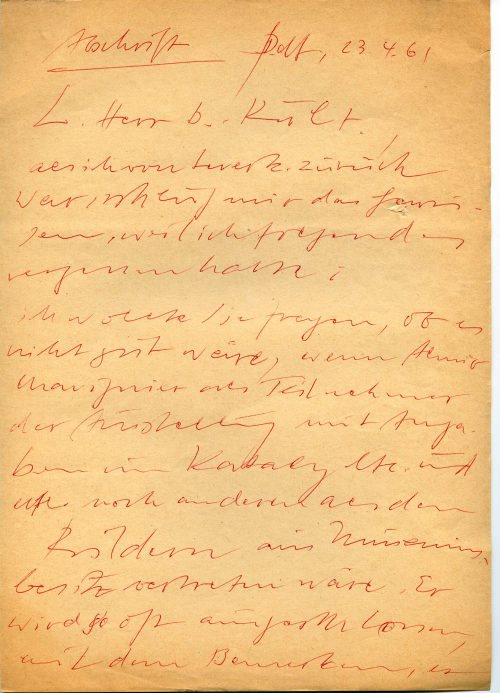 Abschrift Ddf, 23.4.61
L. Herr D. Kult
als ich von Leverk. zurück
war, schlug mir das Gewis-
sen, weil ich folgendes
vergessen hatte:
ich wollte Sie fragen, ob es
nicht gut wäre, wenn Almir
Mavignier als Teilnehmer
der Ausstellung mit Anga-
ben im Katalog etc. und
noch anderen als den
Bildern aus Museums-
besitz vertreten wäre. Er
wird so oft ausgeschlossen,
mit dem Bemerken, es